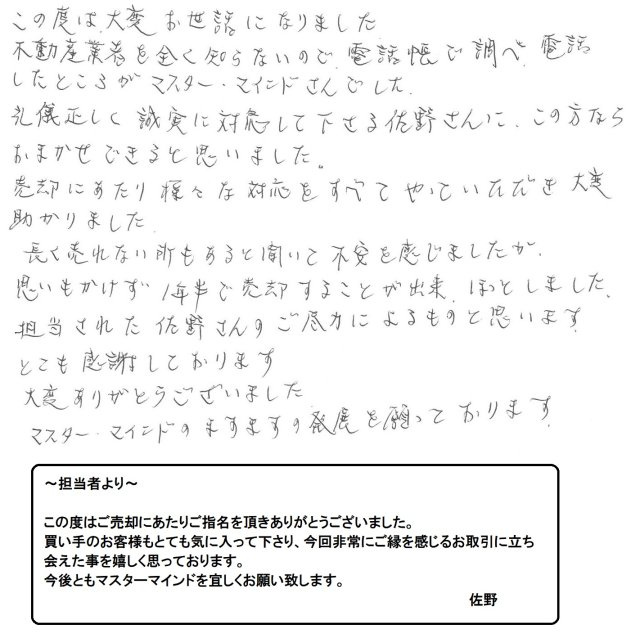 この度は、大変お世話になりました
不動産業者を全く知らないので、電話帳で調べ、電話
したところがマスター・マインドさんでした。
礼儀正しく誠実に対応して下さる佐野さんに、この方なら
おまかせできると思いました。
売却にあたり様々な対応をすべてやっていただき大変
助かりました。
長く売れない所もあると聞いて不安を感じましたが、
思いもかけず1年半で売却することが出来、ほっとしました。
担当された佐野さんのご尽力によるものと思います。
とても感謝しております
大変ありがとうございました
マスター・マインドのますますの発展を願っております。
～担当者より～
この度はご売却にあたりご指名を頂きありがとうございました。
買い手のお客様もとても気に入って下さり、今回非常にご縁を感じるお取引に立ち
会えた事を嬉しく思っております。
今後ともマスターマインドを宜しくお願い致します。
佐野